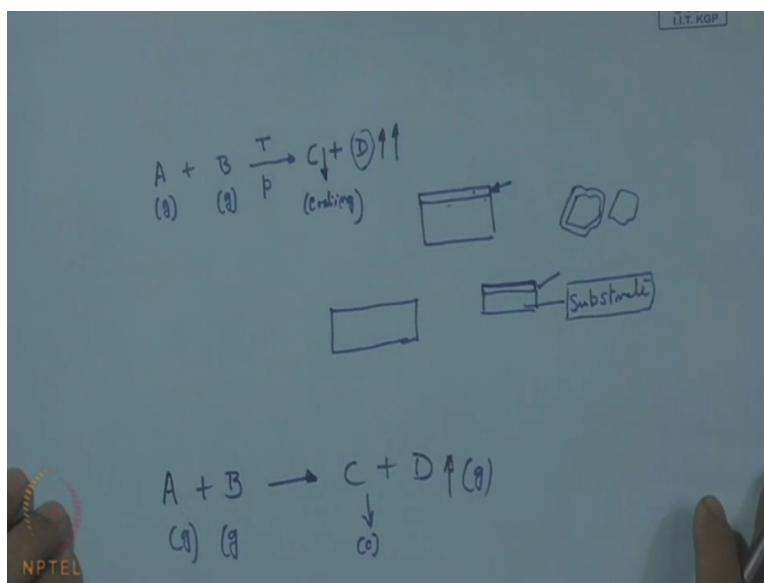 I.I.T. KGP
T
A + B → C↓ + D ↑↑
P
(g) (g) (coating)
Substrate
A + B → C + D ↑ (g)
(g) (g (c)
NPTEL